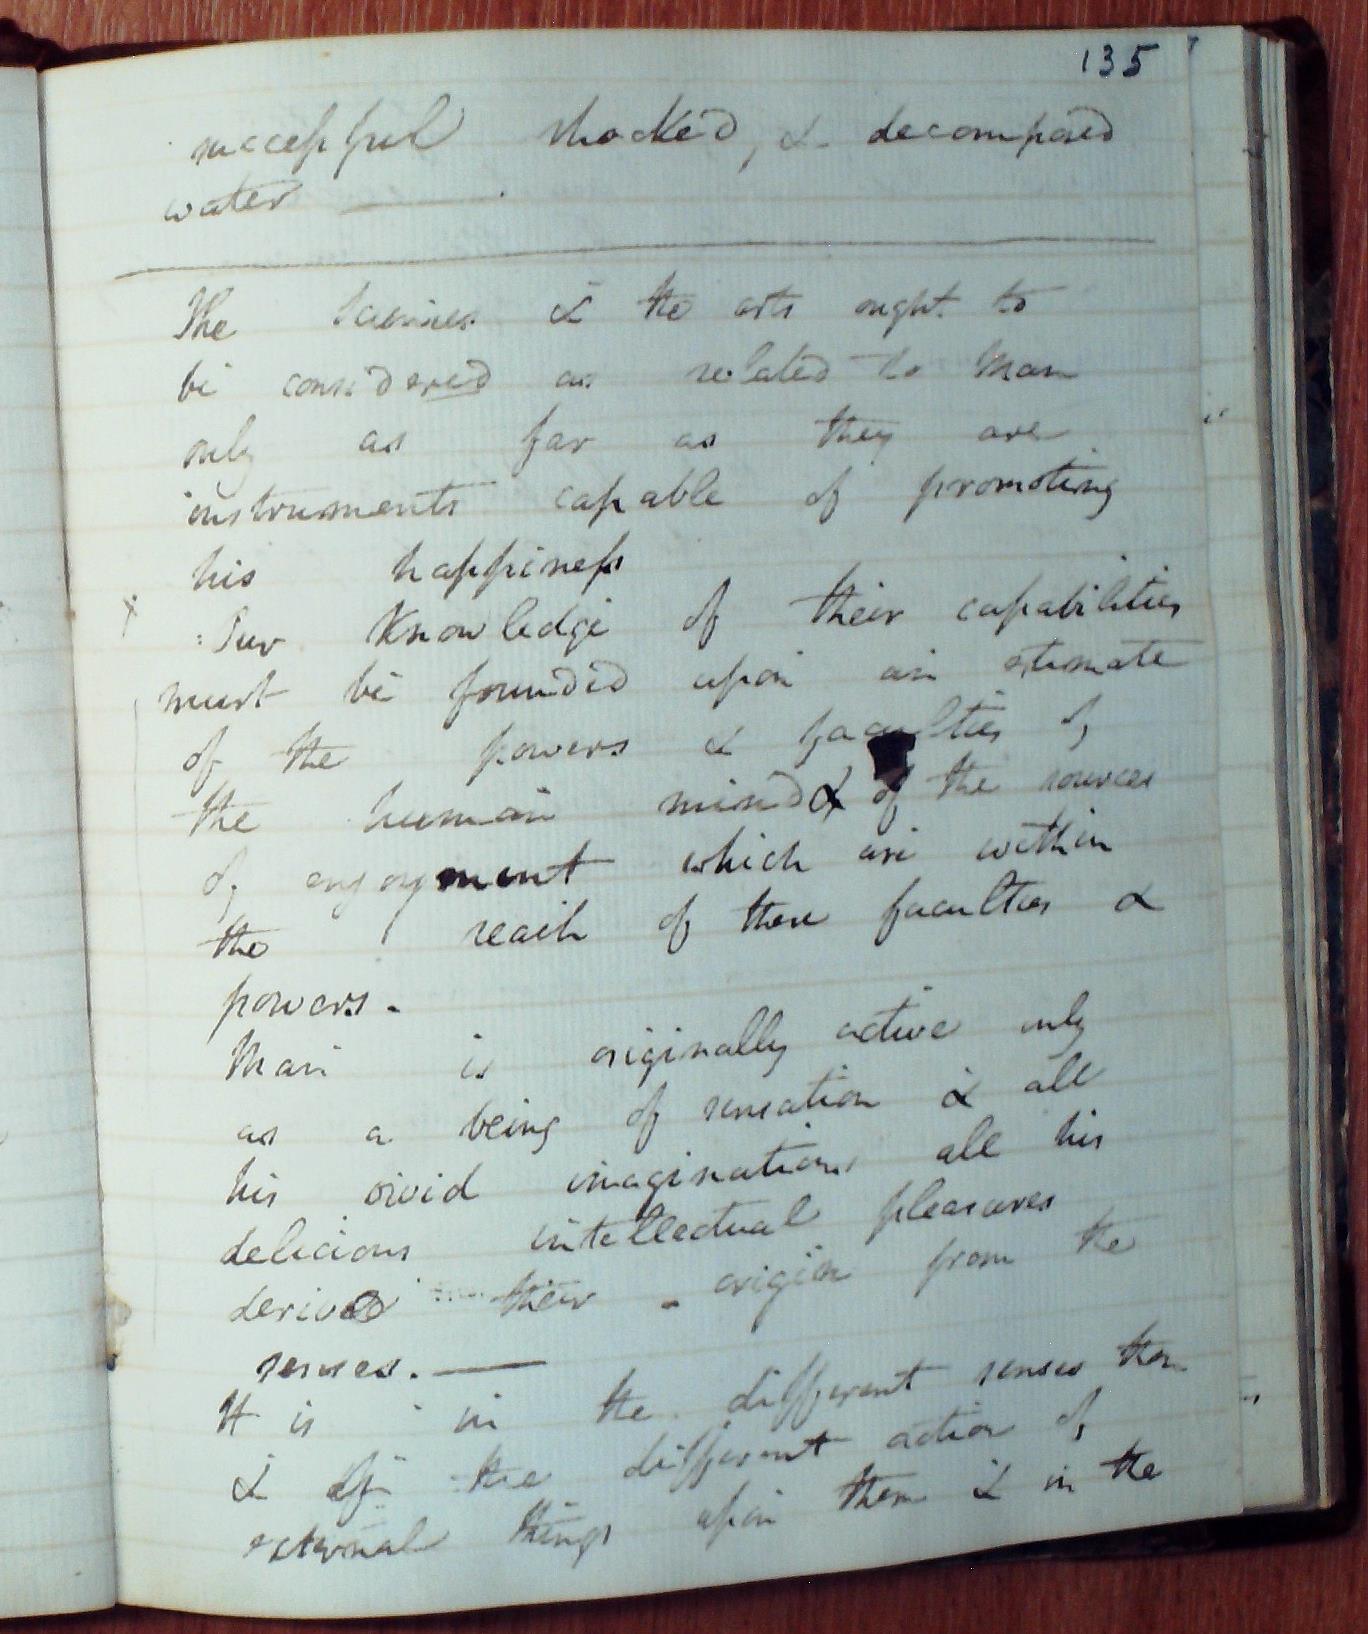 135
successful shocked, & decomposed
water
The Sciences & the arts ought to
be considered as related to Man
only as far as they are
instruments capable of promoting
his happiness
x Our Knowledge of their capabilities
must be founded upon an estimate
of the powers & faculties of
the human mind & of the sources
of enjoyment which are within
the reach of these faculties &
powers. -
Man is originally active only
as a being of sensation & all
his vivid imaginations all his
delicious intellectual pleasures
derive their origin from the
senses. —
It is in the different senses then
& the different action of
external things upon them & in the